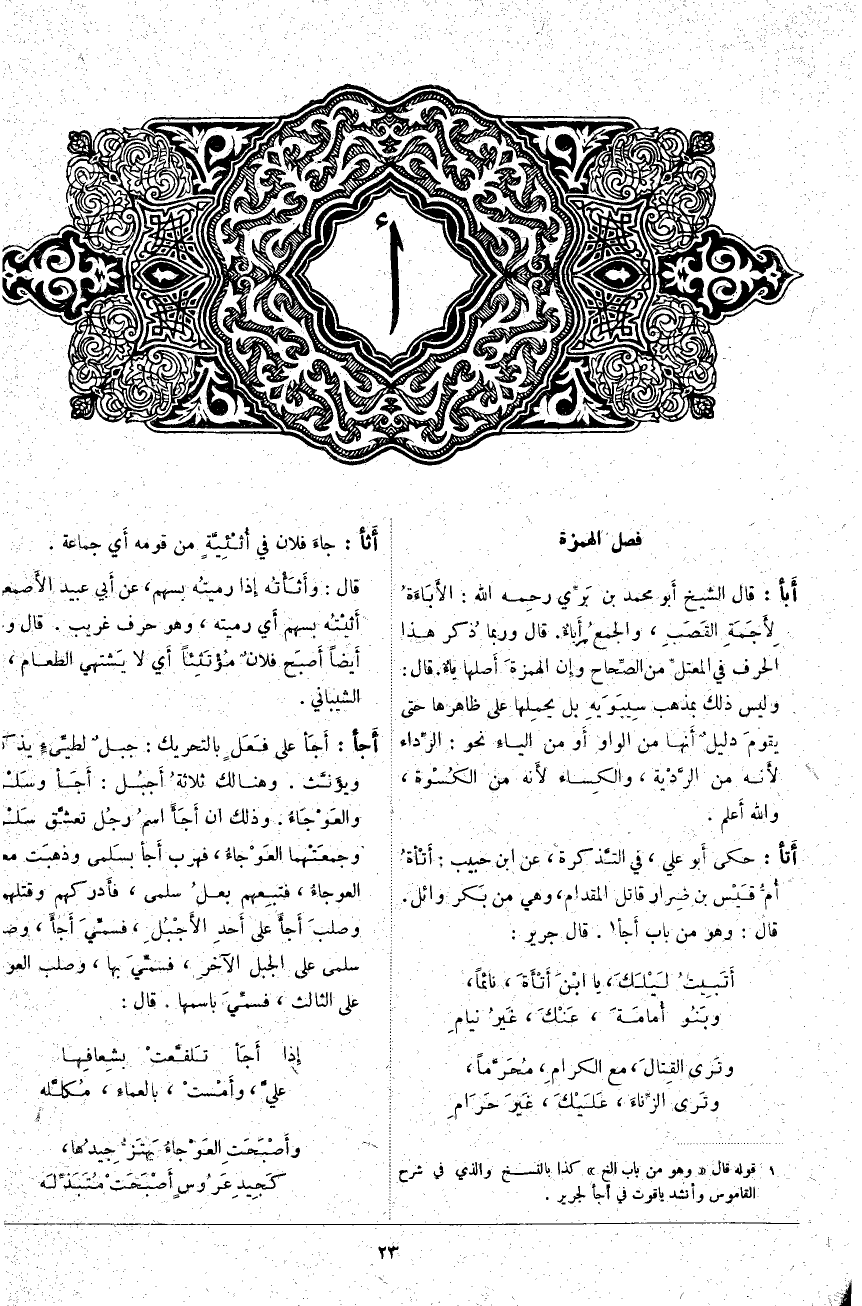 أ
فصل الهمزة
أبأ : قال الشيخ أبو محمد بن بَرِّي رحمه الله : الأَبَاءَةُ
لِأَجَمَةِ القَصَبِ ، والجمعُ أَباءٌ. قال وربما ذُكر هذا
الحرف في المعتلّ من الصِّحاح وإن الهمزةَ أصلها ياءٌ. قال :
وليس ذلك بمذهب سِيبَوَيهِ بل يحملها على ظاهرها حتى
يقومَ دليلٌ أنها من الواو أو من الياء نحو : الرِّداء
لأنه من الرَّدْية ، والكساء لأنه من الكُسْوة ،
والله أعلم .
أتأ : حكى أبو علي ، في التَّذكرة ، عن ابن حبيب : أَتْأَةُ
أُمُّ قَيْس بن ضِرار قاتل المقدام ، وهي من بَكر وائل .
قال : وهو من باب أجأ١ . قال جرير :
أَتَبِيتُ لَيْلَكَ ، يا ابْنَ أَتْأَةَ ، نائمًا ،
وبَنُو أُمامَةَ ، عَنْكَ ، غَيرُ نيامِ
وتَرى القِتالَ ، مع الكرامِ ، مُحَرَّماً ،
وتَرى الزِّناءَ ، عَلَيْكَ ، غَيرَ حَرَامِ
١ قوله قال « وهو من باب الخ » كذا بالنسخ والذي في شرح
القاموس وأنشد ياقوت في أجأ لجرير .
أثأ : جاءَ فلان في أُثْئِيَّةٍ من قومه أي جماعة .
قال : وأَثَأْتُه إذا رميتُه بسهم ، عن أبي عبيد
أَثَيْتُه بسهم أي رميته ، وهو حرف غريب . قال
أيضاً أصبَح فلانٌ مُؤْتَثِئاً أي لا يَشتهي الطعام ،
الشيباني .
أجأ : أَجَأ على فَعَلٍ بالتحريك : جبلٌ لطيّىءٍ
ويؤنَّث . وهنالك ثلاثةُ أَجبُل : أَجَأ
والعَوْجَاءُ . وذلك ان أَجَأً اسمُ رجُل تعشَّق
وجمعَتْهما العَوْجاءُ ، فهرب أجأ بسَلمى وذهبَت
العوجاءُ ، فتبِعهم بعلُ سلمى ، فأَدركهم وقتلهم
وصلبَ أجأً على أَحدِ الأَجْبُلِ ، فسمِّيَ أجأً ،
سلمى على الجبل الآخَر ، فسمِّيَ بها ، وصلب
على الثالث ، فسمِّيَ باسمها . قال :
إذا أَجَأ تَلفَّعتْ بشِعافِها
عليَّ ، وأَمْستْ ، بالعماءِ ، مُكلَّله
وأَصْبَحَتِ العَوْجاءُ يَهتَزُّ جِيدُها ،
كَجِيدِ عَرُوسٍ أَصْبَحَتْ مُتَبَذِّلَه
٢٣